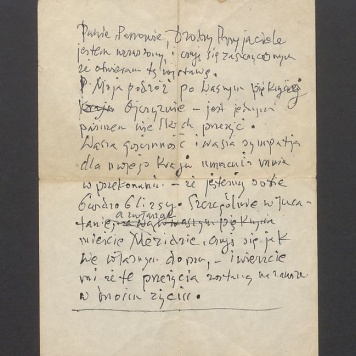 Panie Panowie, Drodzy Przyjaciele
jestem wzruszony, czuję się zaszczyconym
że otwieram tę wystawę.
Moja podróż po Waszym pięknym
kraju Ojczyźnie – jest jednym
pasmem przeżyć.
Wasza gościnność i wasza sympatia
dla mojego Kraju umacnia mnie
w przekonaniu – że jesteśmy sobie
bardzo bliscy. Szczególnie w Juca-
tanie, a zwłaszcza w pięknym
mieście Méridzie, czuję się jak
we własnym domu, – i wierzcie
mi że te przeżycia zostaną na zawsze
w moim życiu.